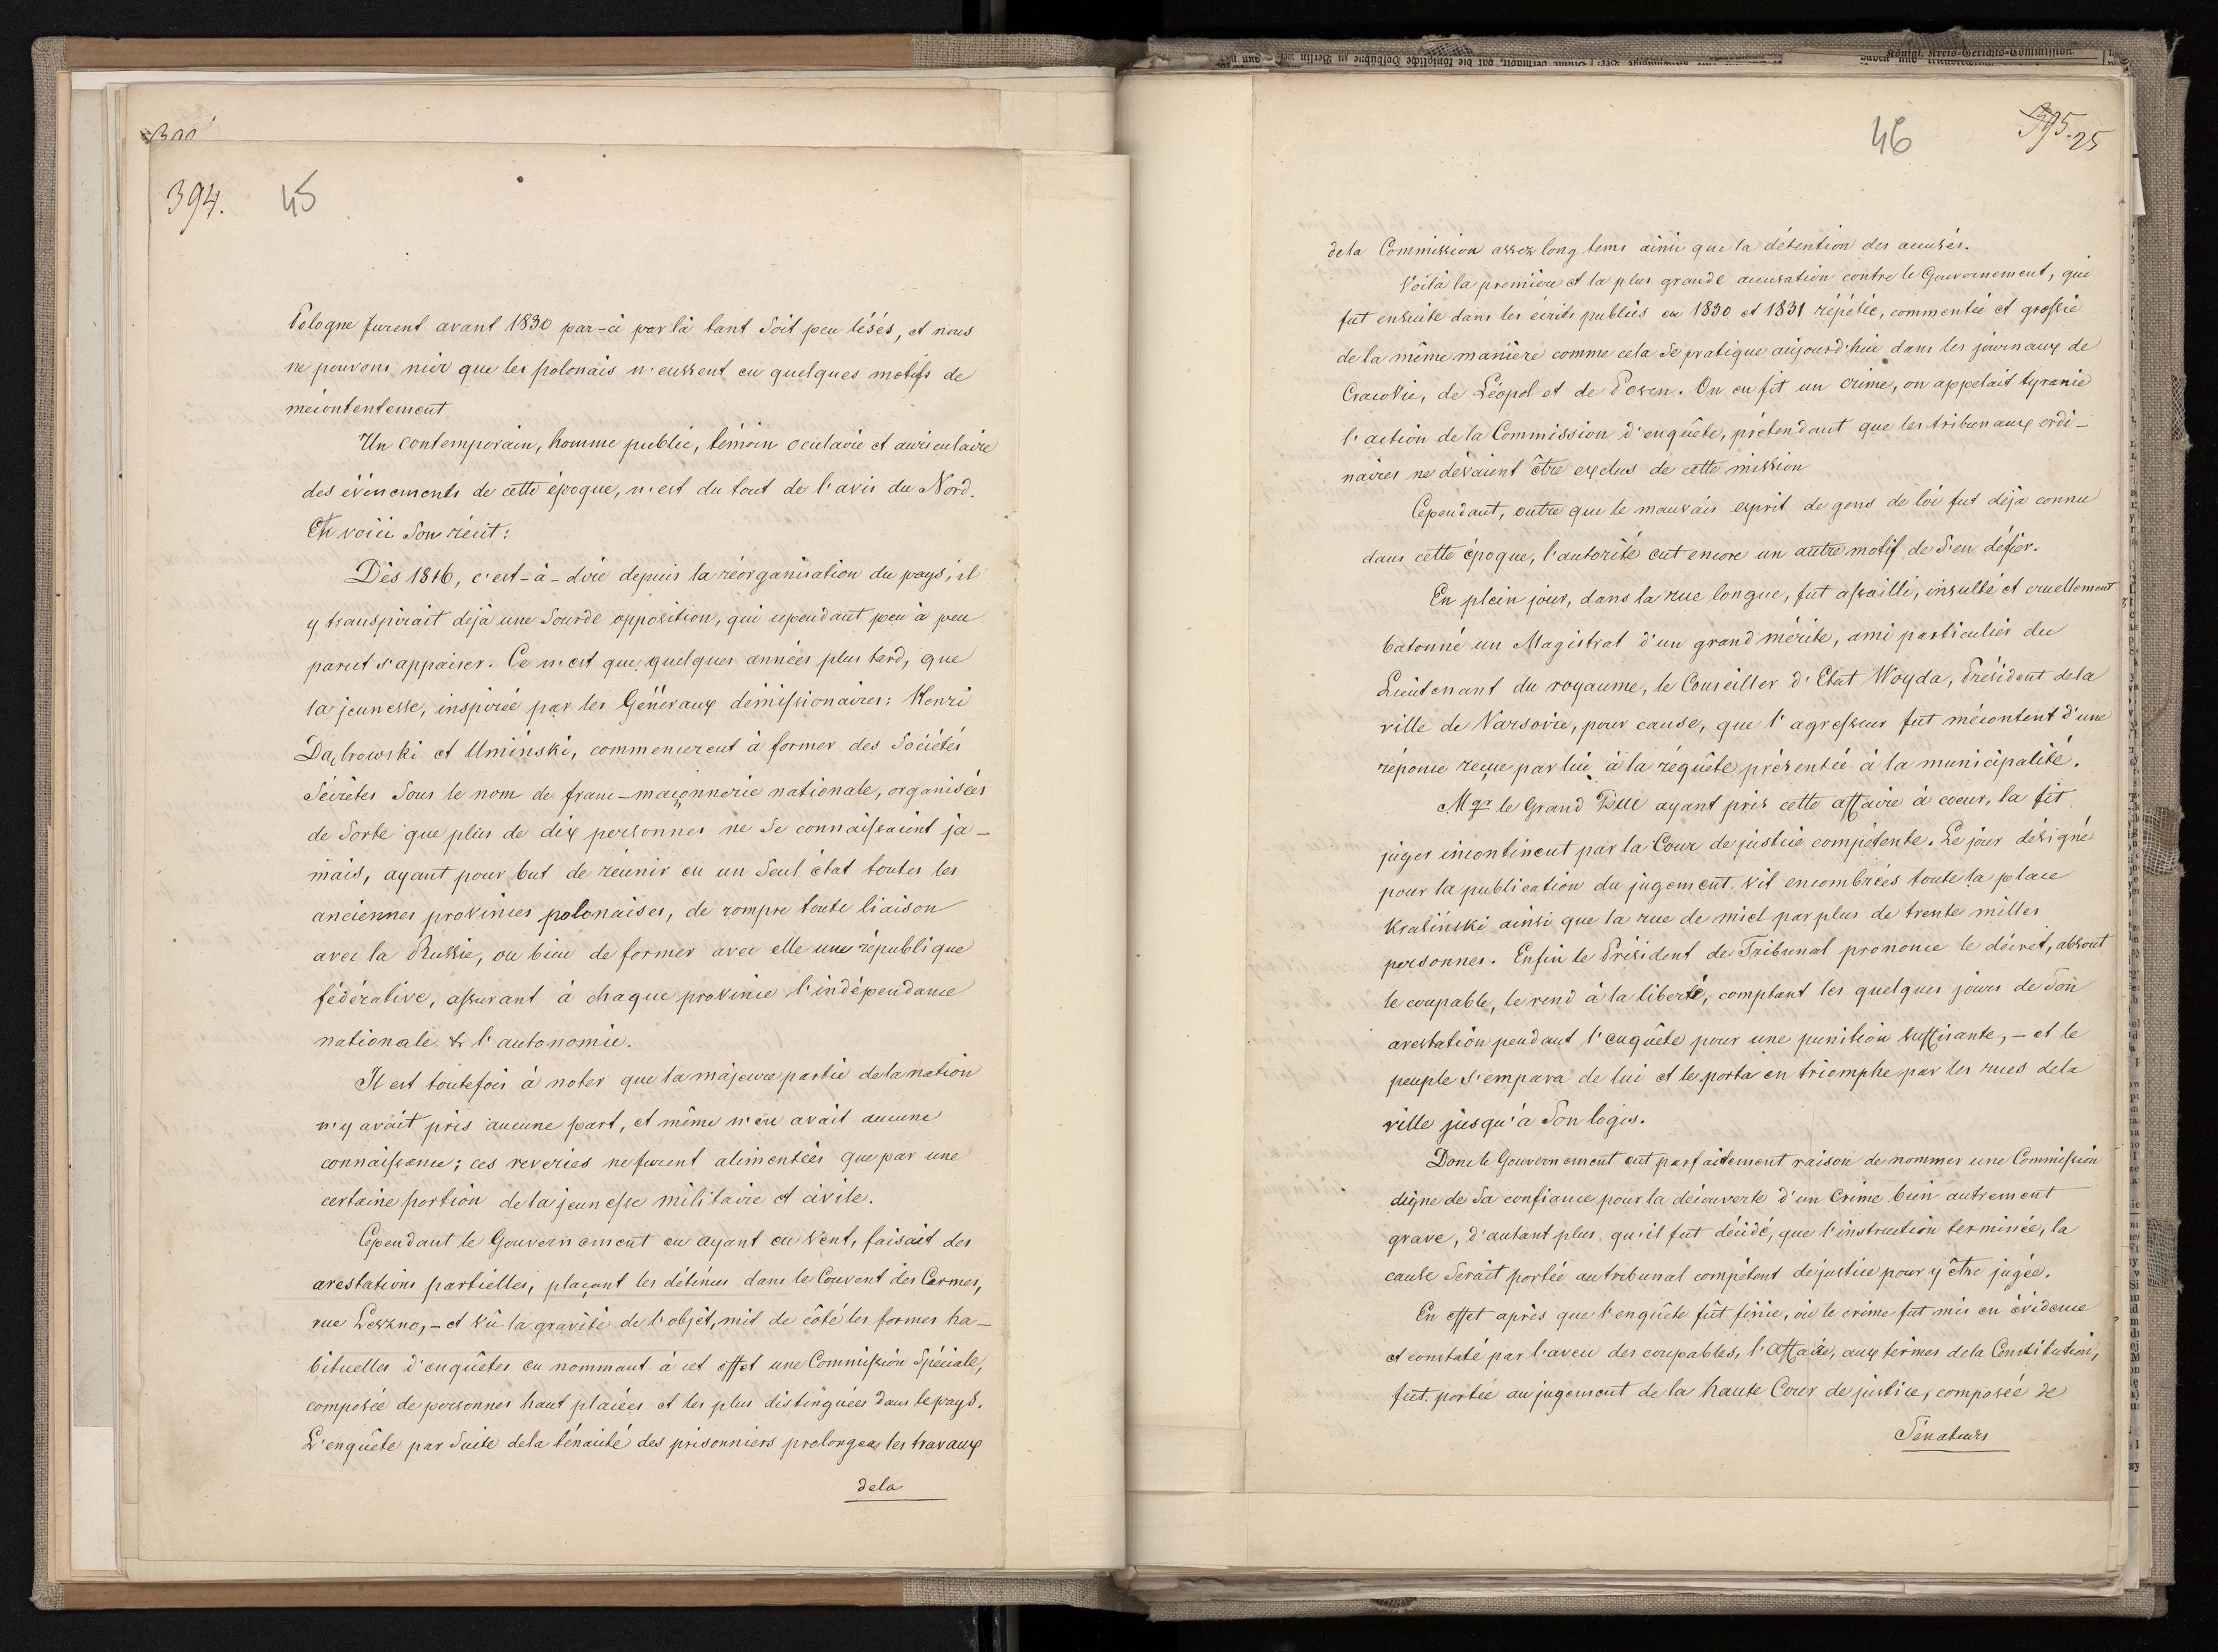 394. 45
Pologne furent avant 1830 par-ci par là tant soit peu lésés, et nous
ne pouvons nier que les polonais n'eussent eu quelques motifs de
mécontentement
Un contemporain, homme public, témoin oculaire et auriculaire
des événements de cette époque, n'est du tout de l'avis du Nord.
Et voici son récit:
Dès 1816, c'est-à-dire depuis la réorganisation du pays, il
y transpirait déjà une sourde opposition, qui cependant peu à peu
parut s'appaiser. Ce n'est que quelques années plus tard, que
la jeunesse, inspirée par les Généraux démissionaires: Henri
Dąbrowski et Umiński, commencerent à former des Sociétés
Sécrètes sous le nom de franc-maçonnerie nationale, organisées
de sorte que plus de dix personnes ne se connaissaient ja-
mais, ayant pour but de réunir en un seul état toutes les
anciennes provinces polonaises, de rompre toute liaison
avec la Russie, ou bien de former avec elle une république
fédérative, assurant à chaque province l'indépendance
nationale & l'autonomie.
Il est toutefois à noter que la majeure partie de la nation
n'y avait pris aucune part, et même n'en avait aucune
connaissance; ces reveries ne furent alimentées que par une
certaine portion de la jeunesse militaire et civile.
Cependant le Gouvernement en ayant eu vent, faisait des
arestations partielles, plaçant les détenus dans le Couvent des Carmes,
rue Leszno, - et vû la gravité de l'objèt, mit de côté les formes ha-
bituelles d'enquêtes en nommant à cet effet une Commission Spéciale,
composée de personnes haut placées et les plus distinguées dans le pays.
L'enquête par suite de la ténacité des prisonniers prolongea les travaux
dela
46 395. 25
dela Commission assez long tems ainsi que la détention des accusés.
Voilà la première et la plus grande accusation contre le Gouvernement, qui
fut ensuite dans les écrits publiés en 1830 et 1831 répétée, commentée et grossie
de la même manière comme cela se pratique aujourd'hui dans les journaux de
Cracovie, de Léopol et de Posen. On en fit un crime, on appelait tyranie
l'action de la Commission d'enquête, prétendant que les tribunaux ordi-
naires ne dévaient être exclus de cette mission
Cependant, outre que le mauvais esprit de gens de loi fut déjà connu
dans cette époque, l'autorité eut encore un autre motif de s'en défier.
En plein jour, dans la rue longue, fut assailli, insulté et cruellement
batonné un Magistrat d'un grand mérite, ami particulier du
Lieutenant du royaume, le Conseiller d'Etat Woyda, Président dela
ville de Varsovie, pour cause, que l'agresseur fut mécontent d'une
réponse reçue par lui à la réquête présentée à la municipalité.
Mgr le Grand Duc ayant pris cette affaire à coeur, la fit
juger incontinent par la Cour de justice compétente. Le jour désigné
pour la publication du jugement vit encombrées toute la place
Krasiński ainsi que la rue de miel par plus de trente milles
personnes. Enfin le Président de Tribunal prononce le décret, absout
le coupable, le rend à la liberté, comptant les quelques jours de son
arestation pendant l'enquête pour une punition suffisante, - et le
peuple s'empara de lui et le porta en triomphe par les rues dela
ville jusqu'à son logis.
Donc le Gouvernement eut parfaitement raison de nommer une Commission
digne de sa confiance pour la découverte d'un crime bien autrement
grave, d'autant plus, qu'il fut décidé, que l'instruction terminée, la
cause serait portée au tribunal compétent de justice pour y être jugée.
En effet après que l'enquête fût finie, où le crime fut mis en évidence
et constaté par l'aveu des coupables, l'affaire, aux termes dela Constitution,
fut portée au jugement de la haute Cour de justice, composée de
Sénateurs